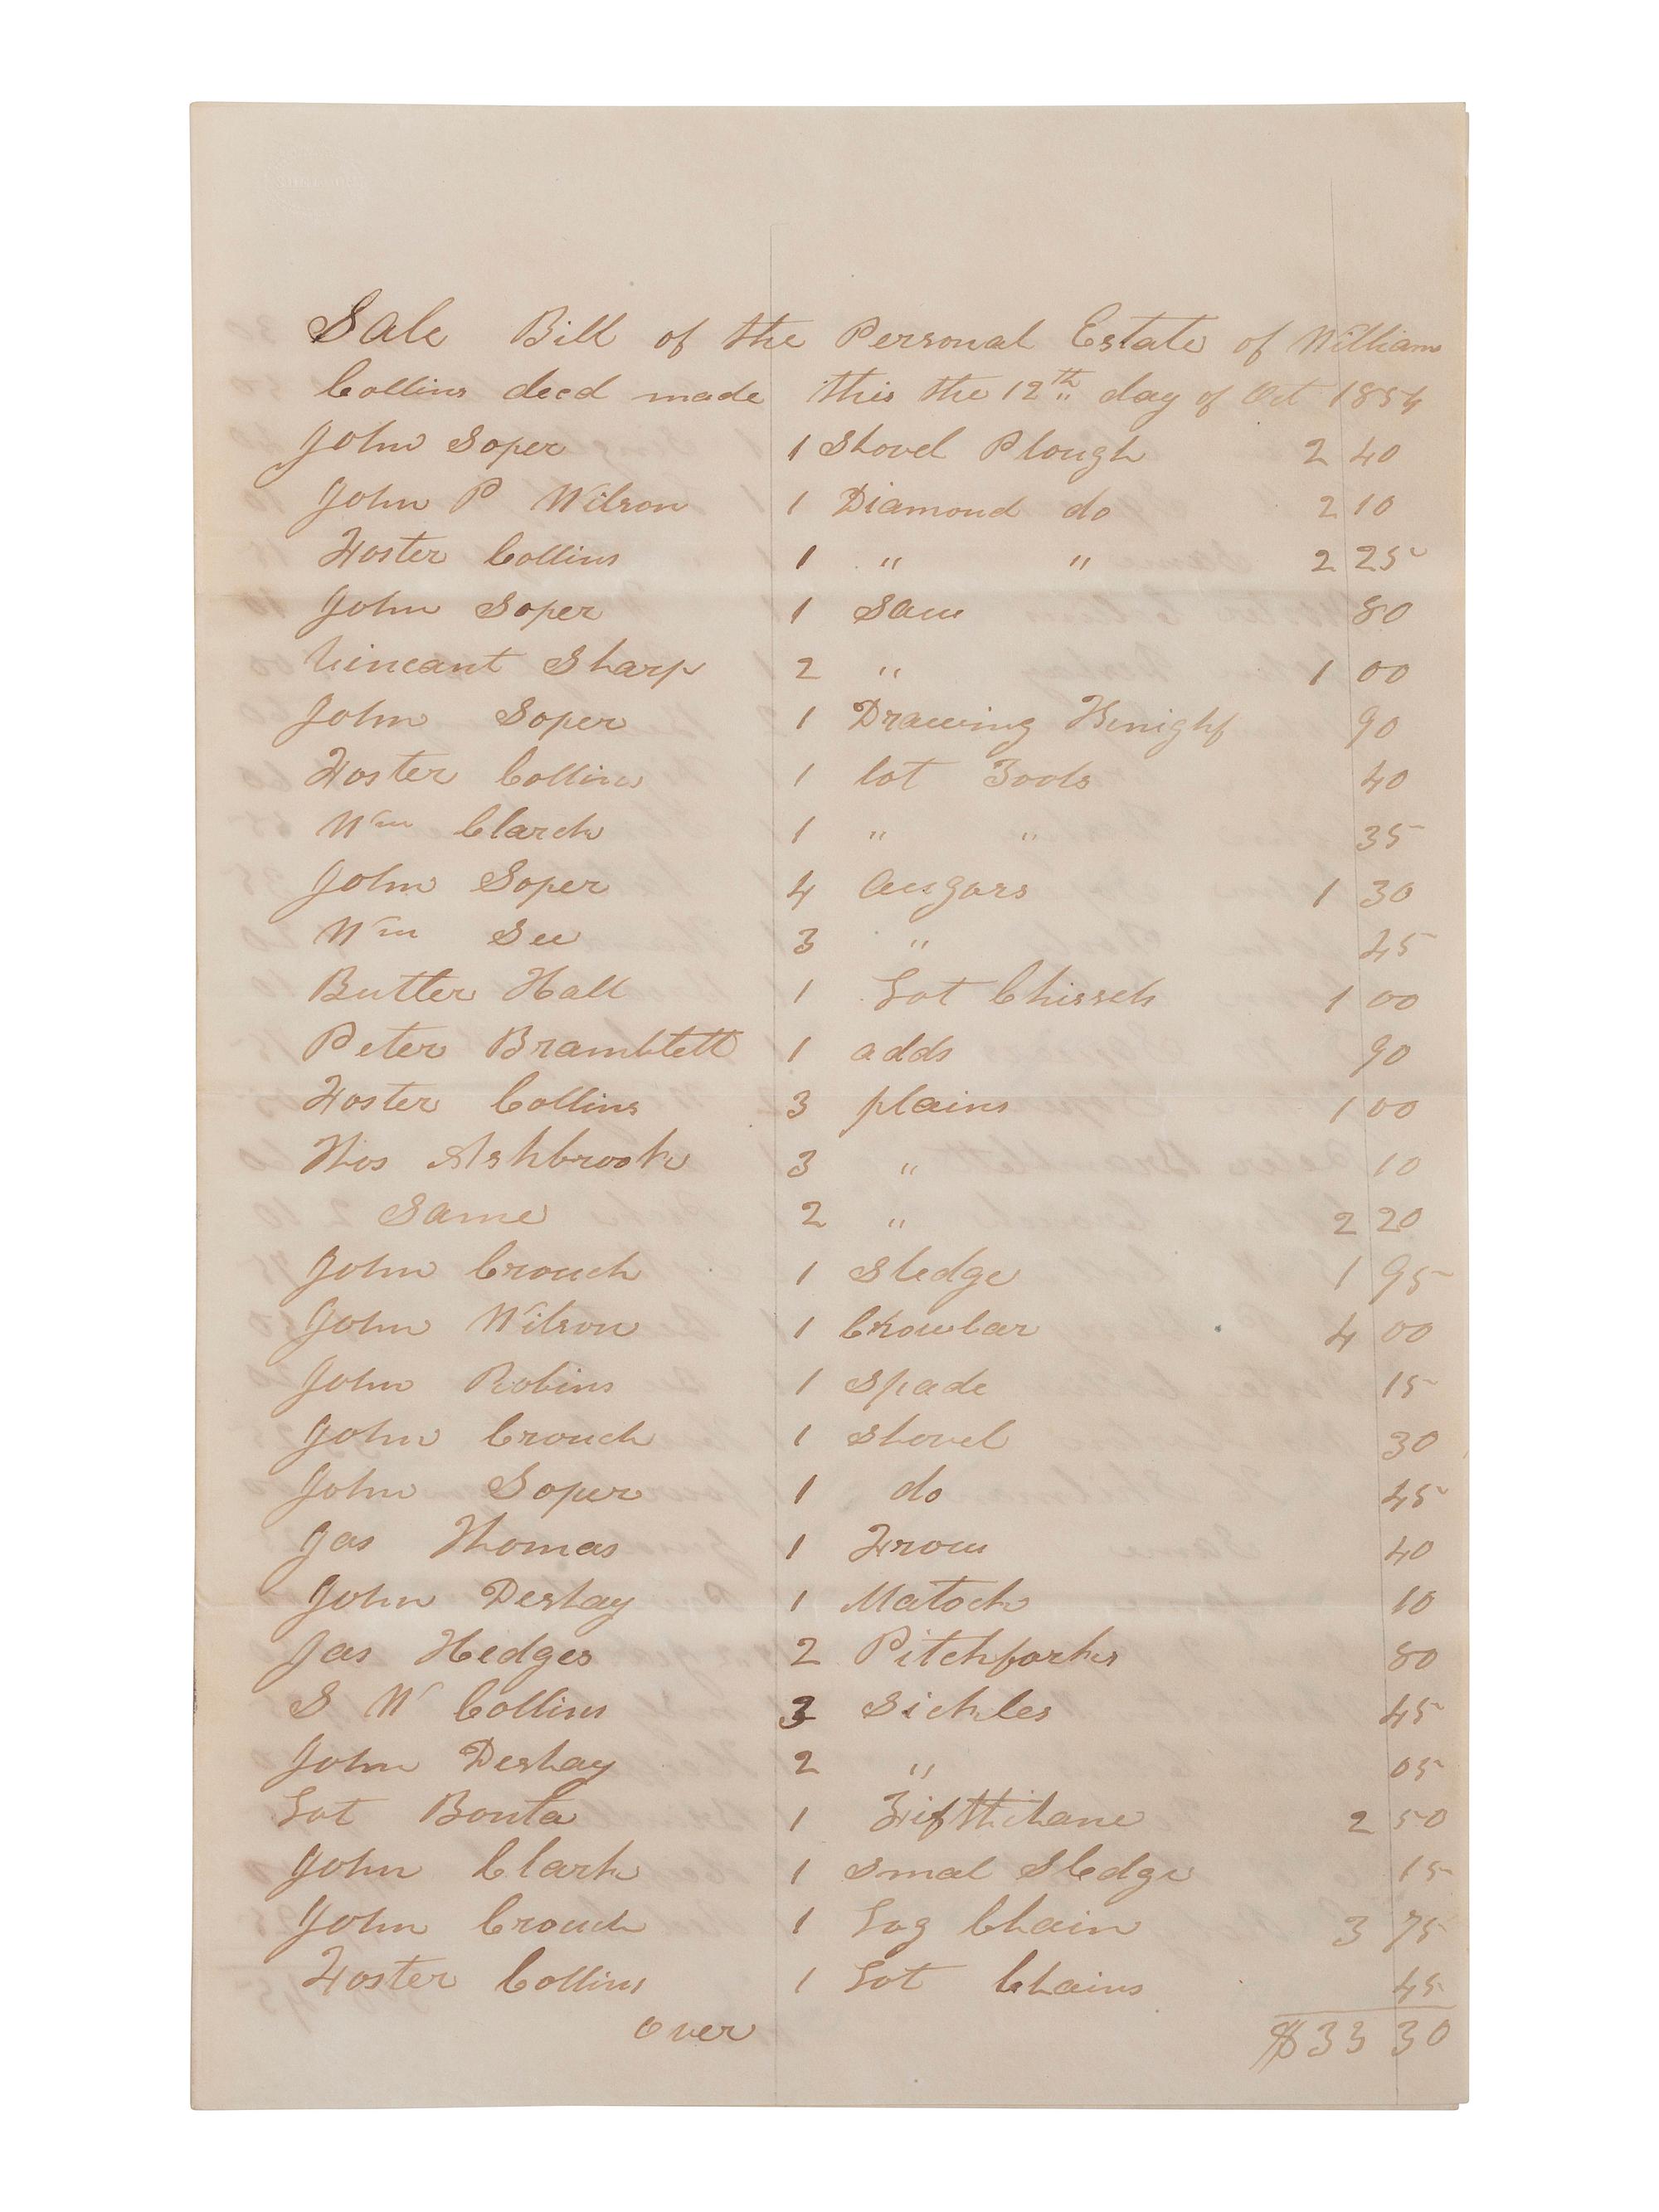 Sale Bill of the Personal Estate of William
Collins decd made this the 12th day of Oct 1854
John Soper 1 Shovel Plough 2 40
John P Wilson 1 Diamond do 2 10
Foster Collins 1 " " 2 25
John Soper 1 Saw 80
Vincant Sharp 2 " 1 00
John Soper 1 Drawing Knighf 90
Foster Collins 1 lot Tools 40
Wm Clarck 1 " " 35
John Soper 4 Augars 1 30
Wm See 3 " 25
Butler Hall 1 Lot Chissels 1 00
Peter Bramblett 1 adds 90
Foster Collins 3 plains 1 00
Thos Ashbrook 3 " 10
Same 2 " 2 20
John Crouch 1 Sledge 1 95
John Wilson 1 Crowbar 4 00
John Robins 1 Spade 15
John Crouch 1 Shovel 30
John Soper 1 do 45
Jas Thomas 1 Frow 40
John Deshay 1 Matock 10
Jas Hedges 2 Pitchforks 80
S W Collins 3 Sickles 45
John Deshay 2 " 05
Lot Bonta 1 2 50
John Clark 1 Smal Sledge 15
John Crouch 1 Log Chain 3 75
Foster Collins 1 Lot Chains 45
over $33 30